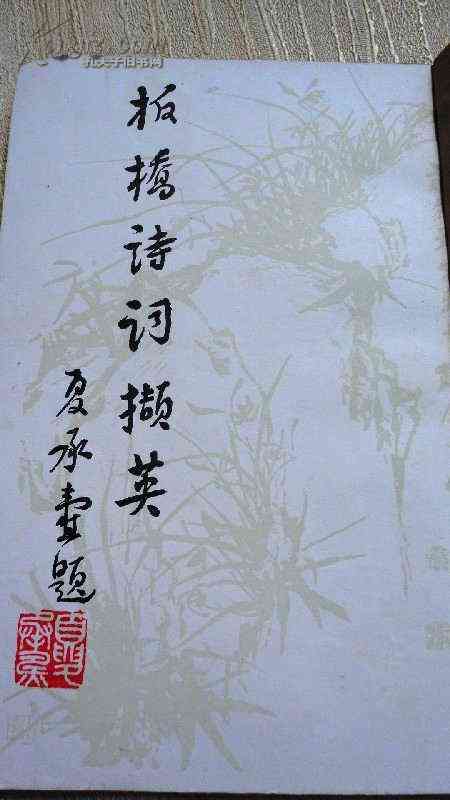 板橋詩词擷英
夏承焘题
孔夫子旧书网